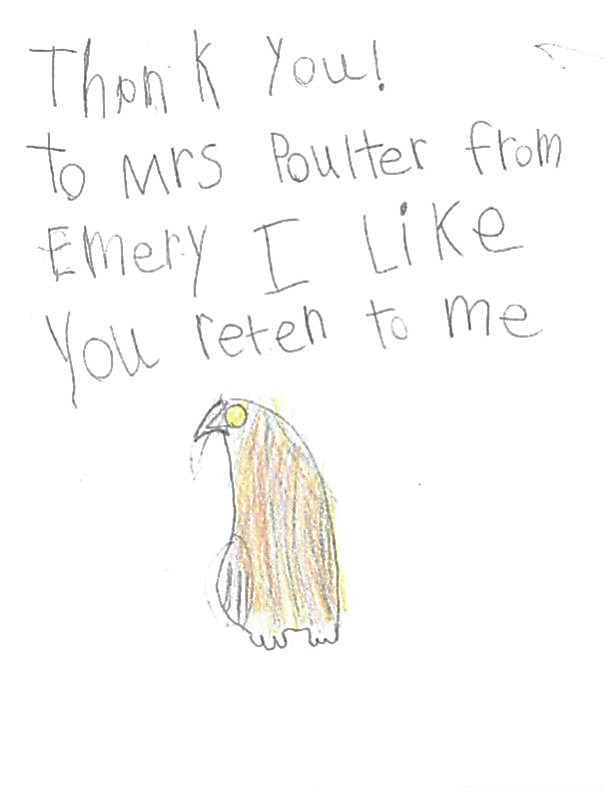 Thank You!
To Mrs Poulter from
Emery I Like
You reten to me